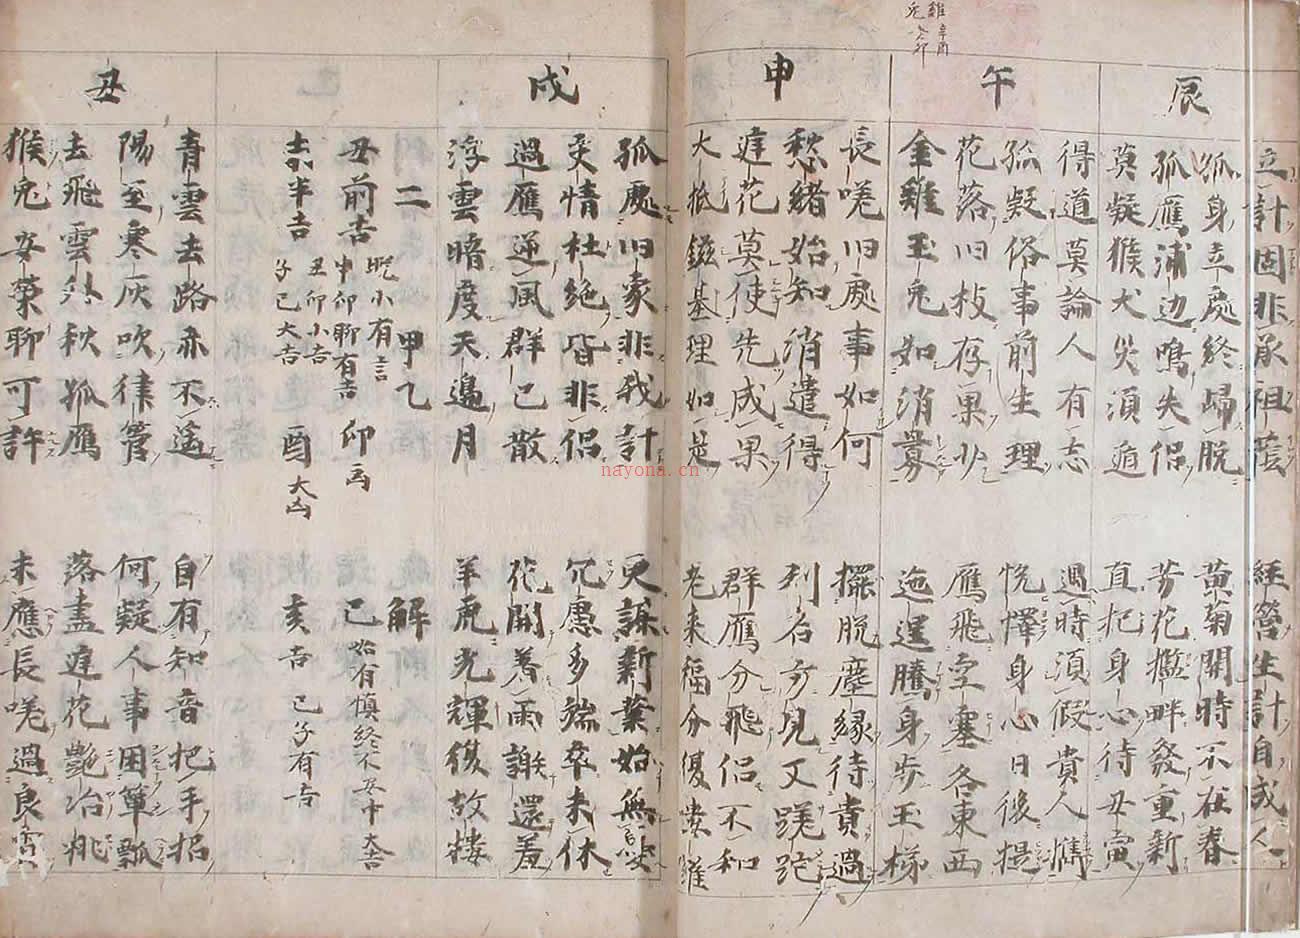 雞 辛酉
兎 乙卯
立計固非承祖蔭 経營生計自成人
辰
孤身立處終歸脱 黄菊開時不在春
孤鴈浦边鳴失侣 芳花檻畔發重新
莫疑猴犬失須遁 直把身心待丑寅
得道莫論人有志 遇時須假貴人携
午
孤疑俗事前生理 悦懌身心日後提
花落旧枝存果少 鴈飛空塞各東西
金雞玉兎如消寡 迤逞騰身歩玉梯
申
長嗟旧處事如何 擺脱塵縁待貴過
愁緒始知消遣得 列名方見又蹉跎
庭花莫使先成果 群鴈分飛侣不和
大抵鎡基理如是 老来福分復
戌
孤處旧家非我計 更謀新業始無
爻情杜絶皆非侣 冗慮多端卒未休
過鴈逆風群已散 花開着雨謝還羞
浮雲暗度天邉月 羊虎光輝復故楼
二 甲乙 解
丑前吉 晩小有言 申卯聊有吉 卯凶 已 始有慎終不安 大吉
半吉 丑卯小吉 子已大吉 酉 大凶 亥吉 已子有吉
丑
青雲去路亦不遥 自有知音把手招
陽至寒灰吹律管 何疑人事困箪瓢
去飛雲外秋孤鴈 落盡庭花艶冶桃
猴兎安榮聊可許 未應長嗟過良宵
nayona.cn